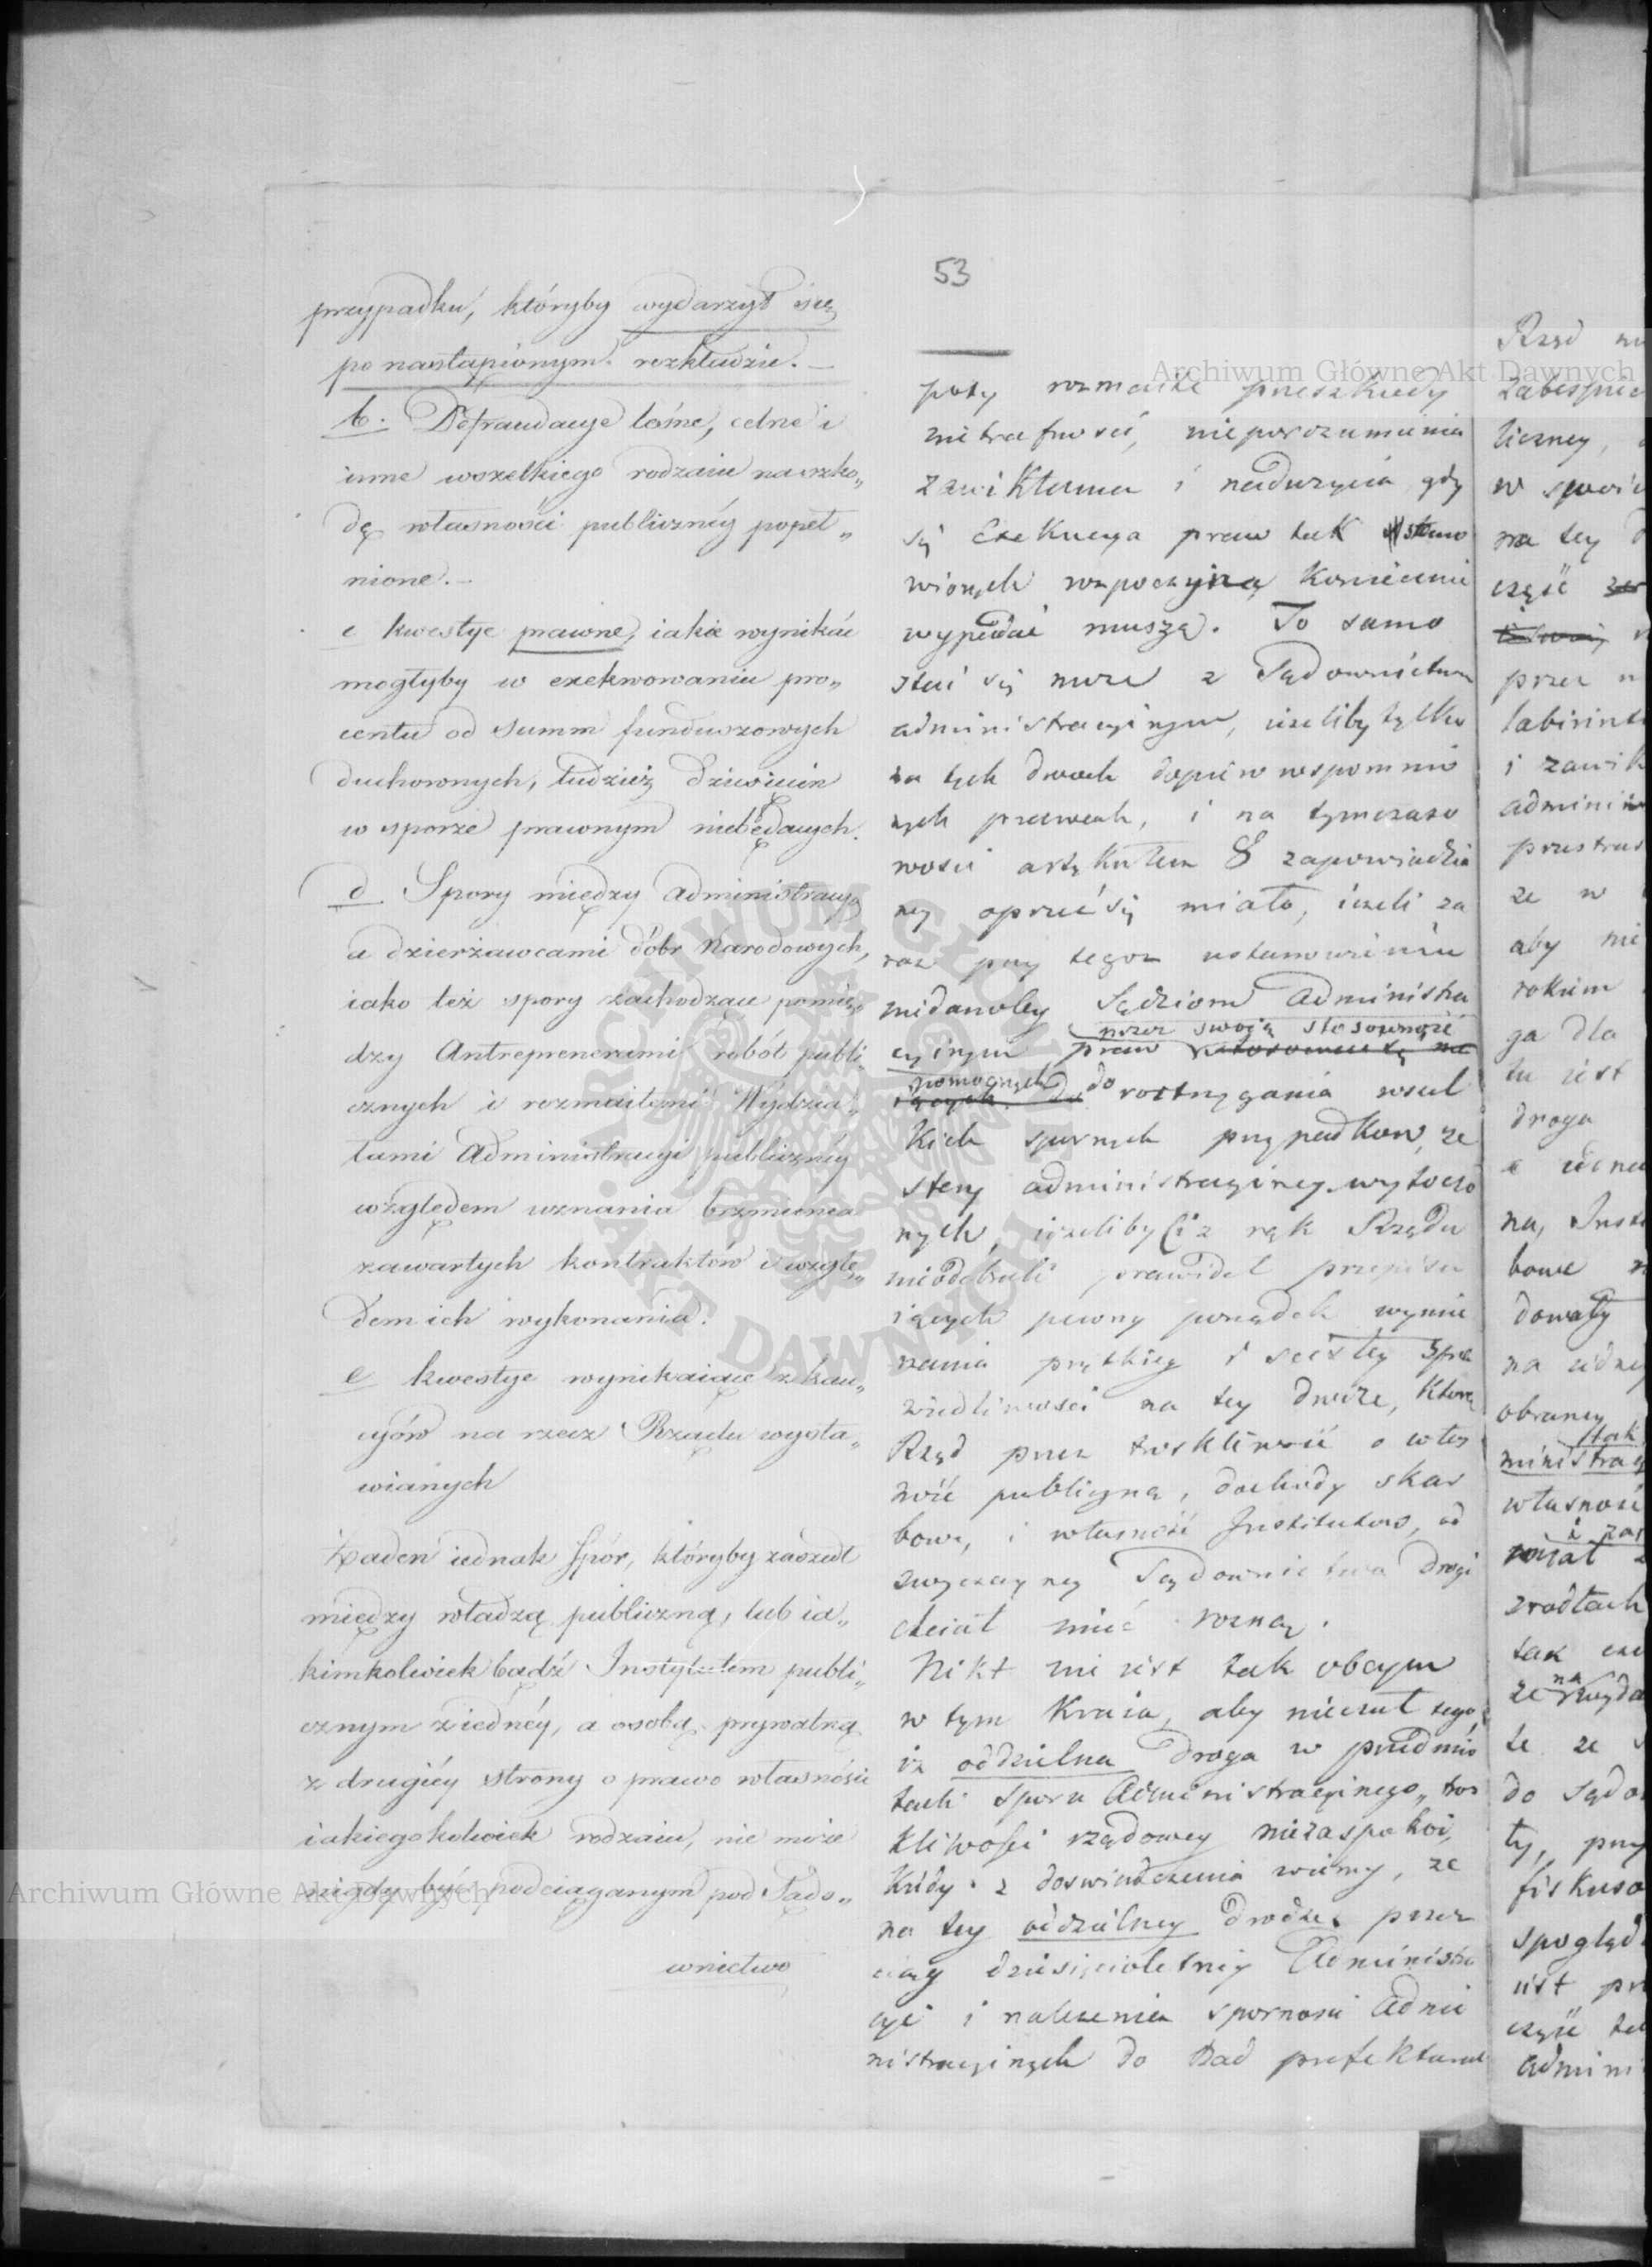 53
przypadku, któryby wydarzył się
po nastąpionym rozkładzie. —
b. Defraudacye leśne, celne i
inne wszelkiego rodzaiu na szko„
dę własności publicznéy popeł„
nione. —
c kwestye prawne, iakie wynikáć
mogłyby w exekwowaniu pro„
centu od summ funduszowych
duchownych, tudzież dziesięcin
w sporze prawnym niebędących.
d Spory między Administracyą
a dzierżawcami dóbr Narodowych,
iako też spory zachodzące pomię„
dzy Antreprenerami robót publi„
cznych i rozmaitemi Wydzia„
łami Administracyi publicznéy
względem uznania brzmienia
zawartych kontraktów i wzglę„
dem ich wykonania.
e kwestye wynikaiące z kau„
cyów na rzecz Rządu wysta„
wianych
Żaden iednak spór, któryby zaszedł
między władzą publiczną, lub ia„
kimkolwiek bądź Instytutem publi„
cznym z iednéy, a osobą prywatną
z drugiéy strony o prawo własności
iakiegokolwiek rodzaiu, nie może
nigdy być podciąganym pod Sądo„
wnictwo
poty rozmaite przeszkody
nietrafność, nieporozumienia
zawikłania i nadużycia gdy
się Exekucya praw tak stano
wionych rozpoczyna koniecznie
wypadać muszą. To samo
stać się może z Sądownictwem
administracyinym, ieżeliby tylko
na tych dwóch dopiero wspomnio
nych prawach, i na tymczaso
wości artykułem 8 zapowiedzia
ney oprzeć się miało, ieżeli za
raz przy tegoż ustanowieniu
niedanoby Sędziom Administra
cyinym praw przez swoją stosowność
pomocnych do rostrzygania wszel
kich spornych przypadkow, ze
sfery administracyiney wytoczo
nych, ieżeliby ci z rąk Rządu
nieodebrali prawideł przepisu
iących pewny porządek wymie
rzania prętkiey i scisłey Spra
wiedliwosci na tey drodze, którą
Rząd przez troskliwość o włas
ność publiczną, dochody skar
bowe, i własność Institutow, od
zwyczayney Sądownictwa drogi
chciał mieć rozną.
Nikt nie iest tak obcym
w tym Kraiu, aby nieczuł tego,
iż oddzielna droga w przedmio
tach sporu Administracyinego, tros
kliwosci rządowey niezaspokoi,
kiedy z doswiadczenia wiemy, że
na tey oddzielney drodze przez
ciąg dziesięcioletniey Administra
cyi i należenia spornosci Admi
nistracyinych do Rad prefektural
Rząd
zabespiec
liczney,
w sposó
na tey
część
przez
labirint
i zawik
admini
ze w
aby nie
rokiem
ga dla
tu iest
droga
na, Inst
bowe
dowały
na iedney
obraney
tak
ministracy
własnosc
zrodłach
tak
na
do sądo
ty, przy
fiskuso
spogląd
iest pr
admini
Archiwum Główne Akt Dawnych
Archiwum Główne Akt Dawnych
ARCHIWUM GŁÓWNE AKT DAWNYCH